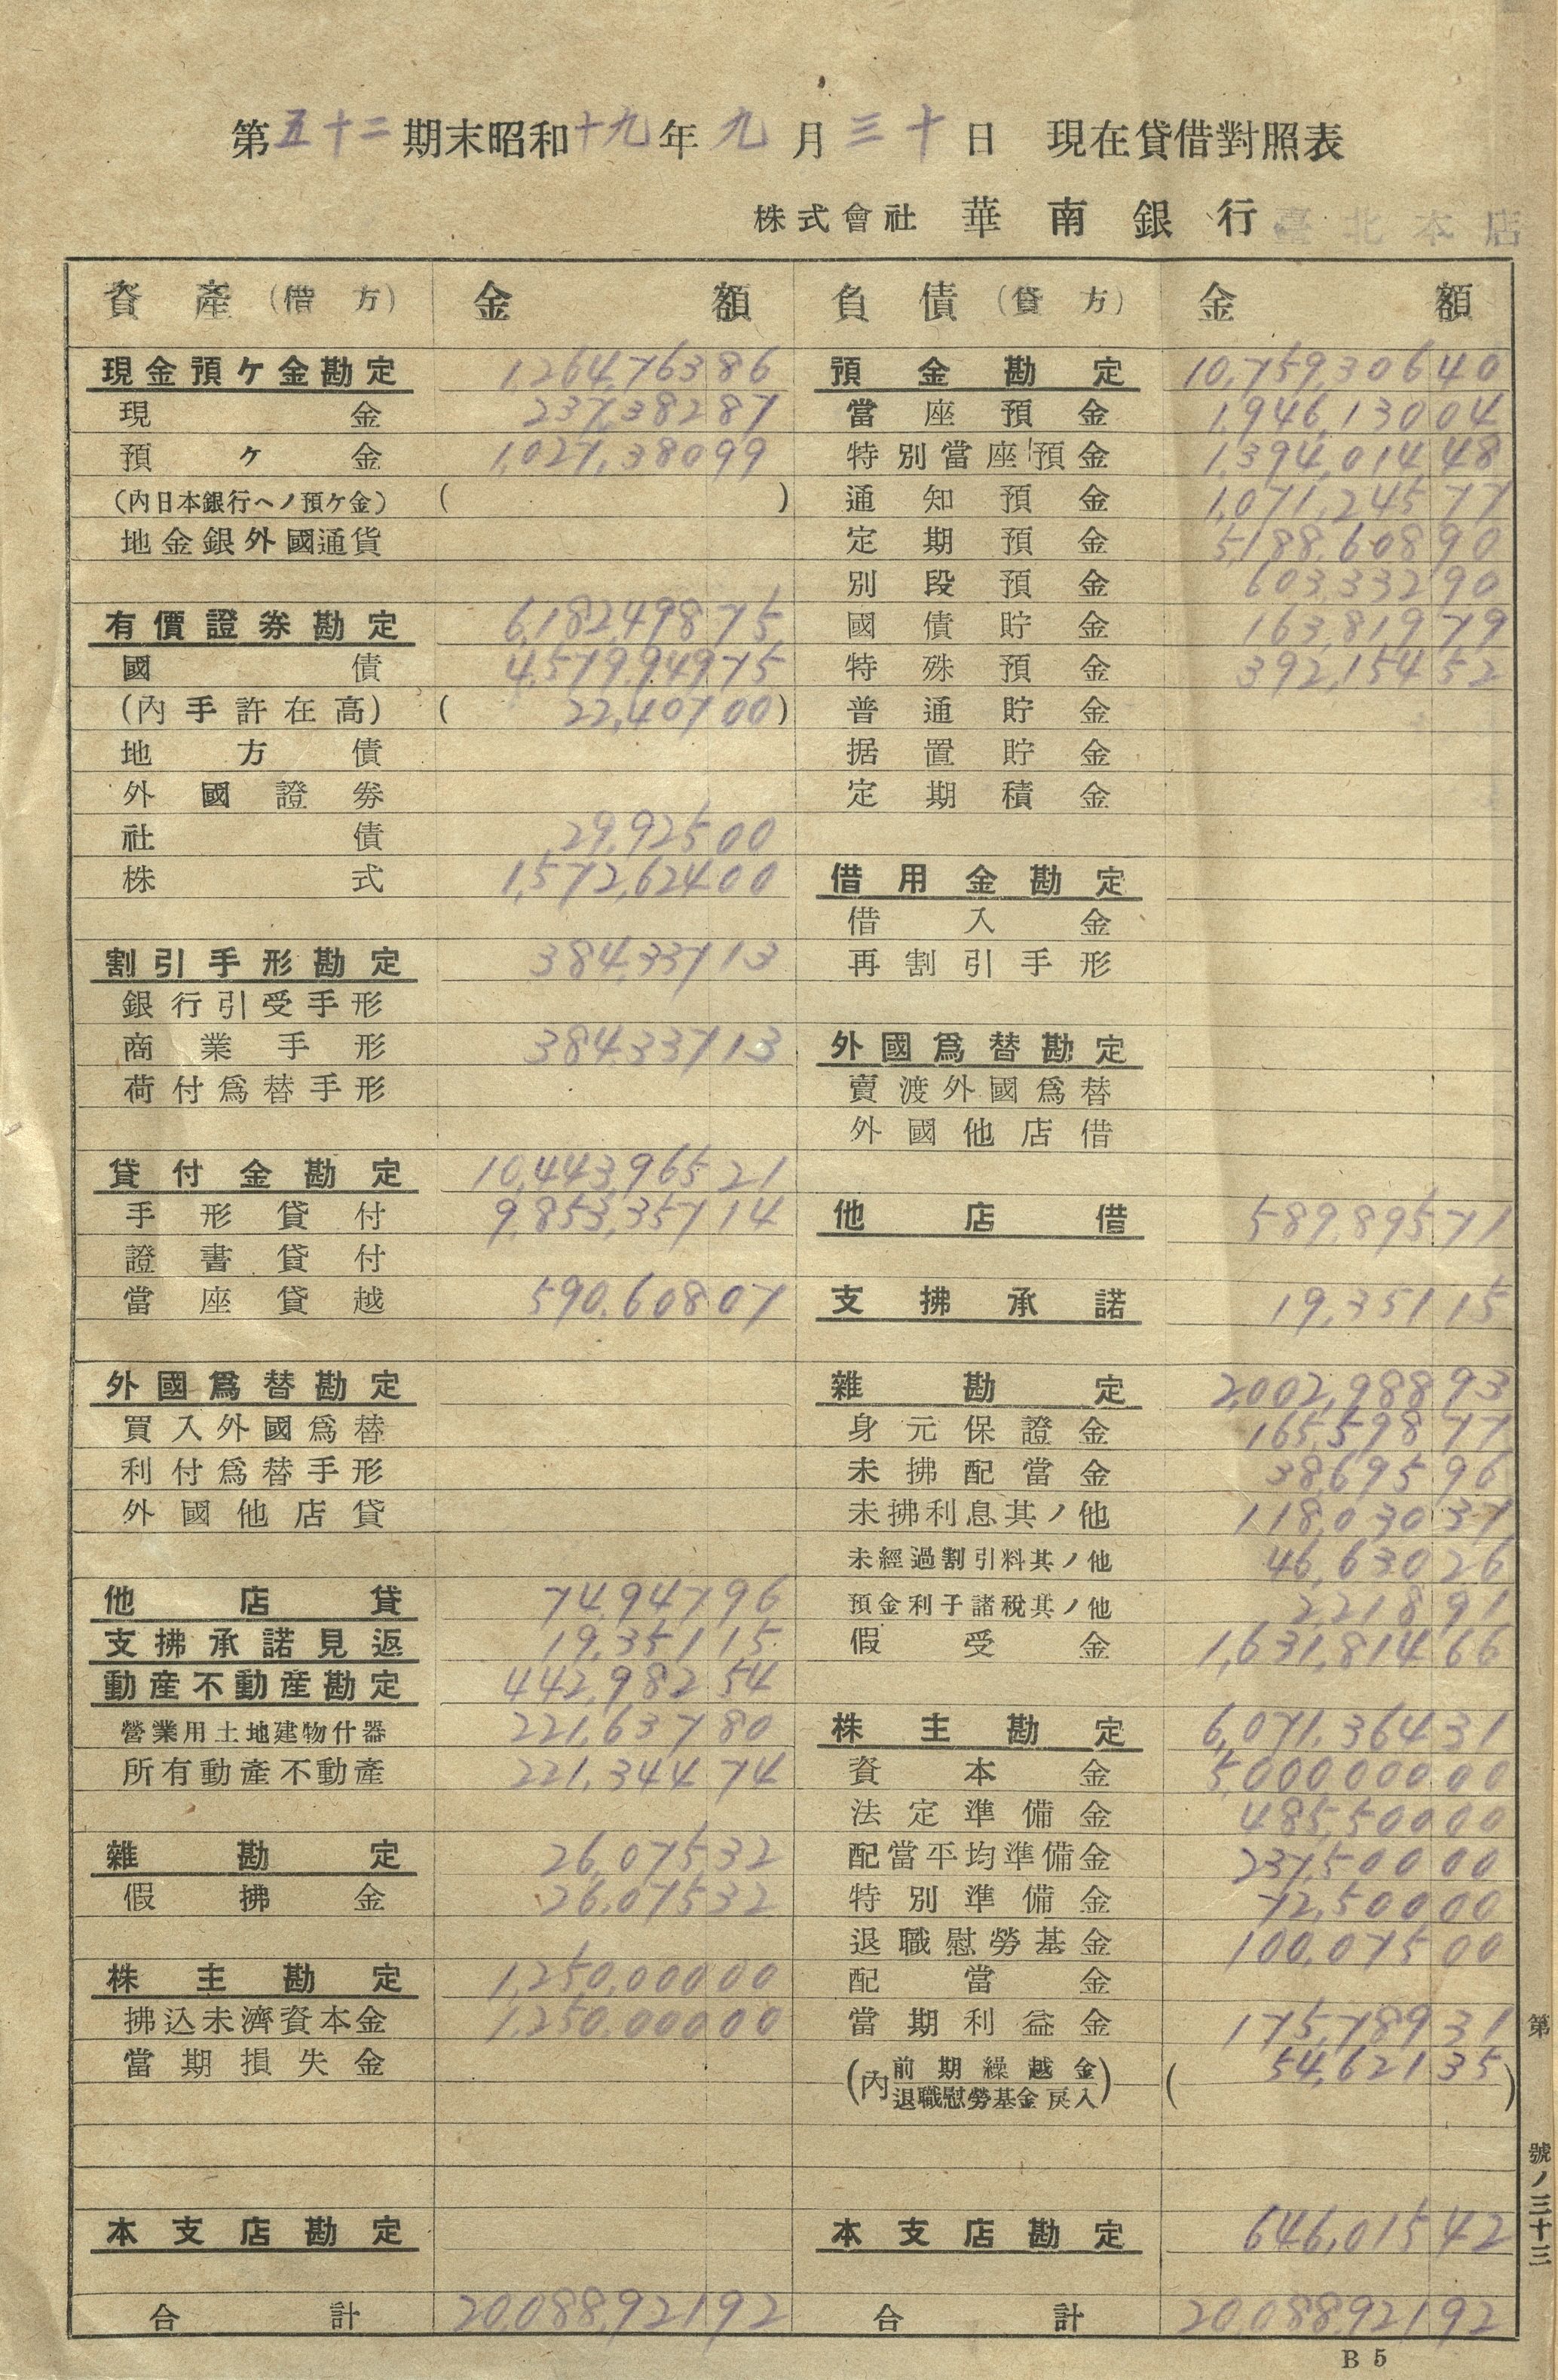 第五十二期末昭和十九年九月三十日 現在貸借對照表
株式會社 華南銀行 臺北本店
資產(借方) 金額 負債(貸方) 金額
現金預ケ金勘定 1,264,763 86 預金勘定 10,759,306 40
現金 237,382 87 當座預金 1,946,130 04
預ケ金 1,027,380 99 特別當座預金 1,394,014 48
(內日本銀行ヘノ預ケ金) ( ) 通知預金 1,071,245 77
地金銀外國通貨 定期預金 5,188,608 90
別段預金 603,332 90
有價證券勘定 6,182,498 75 國債貯金 163,819 79
國債 4,579,949 75 特殊預金 392,154 52
(內手許在高) ( 22,407 00 ) 普通貯金
地方債 据置貯金
外國證券 定期積金
社債 29,925 00
株式 1,572,624 00 借用金勘定
借入金
割引手形勘定 384,337 13 再割引手形
銀行引受手形
商業手形 384,337 13 外國爲替勘定
荷付爲替手形 賣渡外國爲替
外國他店借
貸付金勘定 10,443,965 21
手形貸付 9,853,357 14 他店借 589,895 71
證書貸付
當座貸越 590,608 07 支拂承諾 19,351 15
外國爲替勘定 雜勘定 2,002,988 93
買入外國爲替 身元保證金 165,598 77
利付爲替手形 未拂配當金 38,695 96
外國他店貸 未拂利息其ノ他 118,030 37
未經過割引料其ノ他 46,630 26
他店貸 74,947 96 預金利子諸稅其ノ他 2,218 91
支拂承諾見返 19,351 15 假受金 1,631,814 66
動產不動產勘定 442,982 54
營業用土地建物什器 221,637 80 株主勘定 6,071,364 31
所有動產不動產 221,344 74 資本金 5,000,000 00
法定準備金 485,500 00
雜勘定 26,075 32 配當平均準備金 237,500 00
假拂金 26,075 32 特別準備金 72,500 00
退職慰勞基金 100,075 00
株主勘定 1,250,000 00 配當金
拂込未濟資本金 1,250,000 00 當期利益金 175,789 31
當期損失金 (內 前期繰越金 退職慰勞基金戾入) ( 54,621 35 )
本支店勘定 本支店勘定 646,015 42
合計 20,088,921 92 合計 20,088,921 92
第 號ノ三十三
B 5